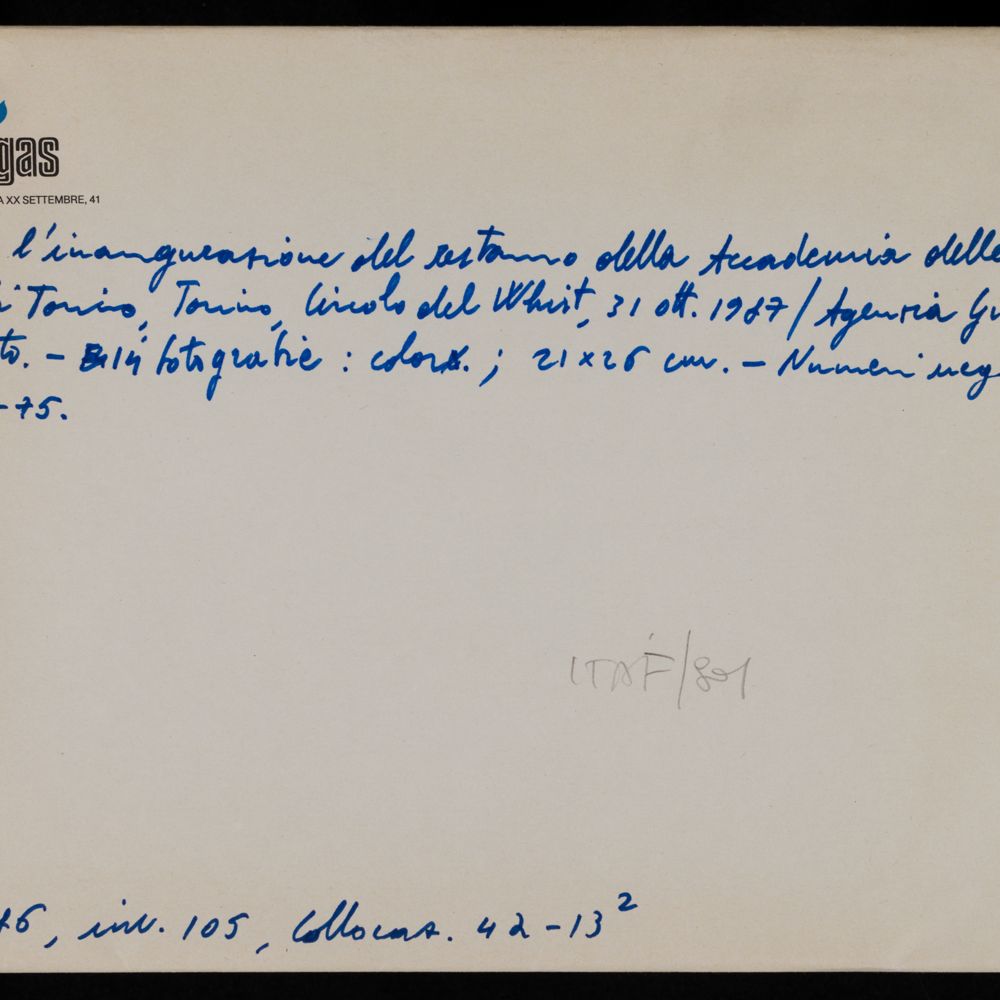 gas
A XX SETTEMBRE, 41
l'inaugurazione del restauro della Accademia delle
di Torino, Torino, Circolo del Whist, 31 ott. 1987 / Agenzia Gu
to. - 14 fotografie : color. ; 21x26 cm. - Numeri neg
-75.
ITAF/801
76, inv. 105, Collocaz. 42-13²